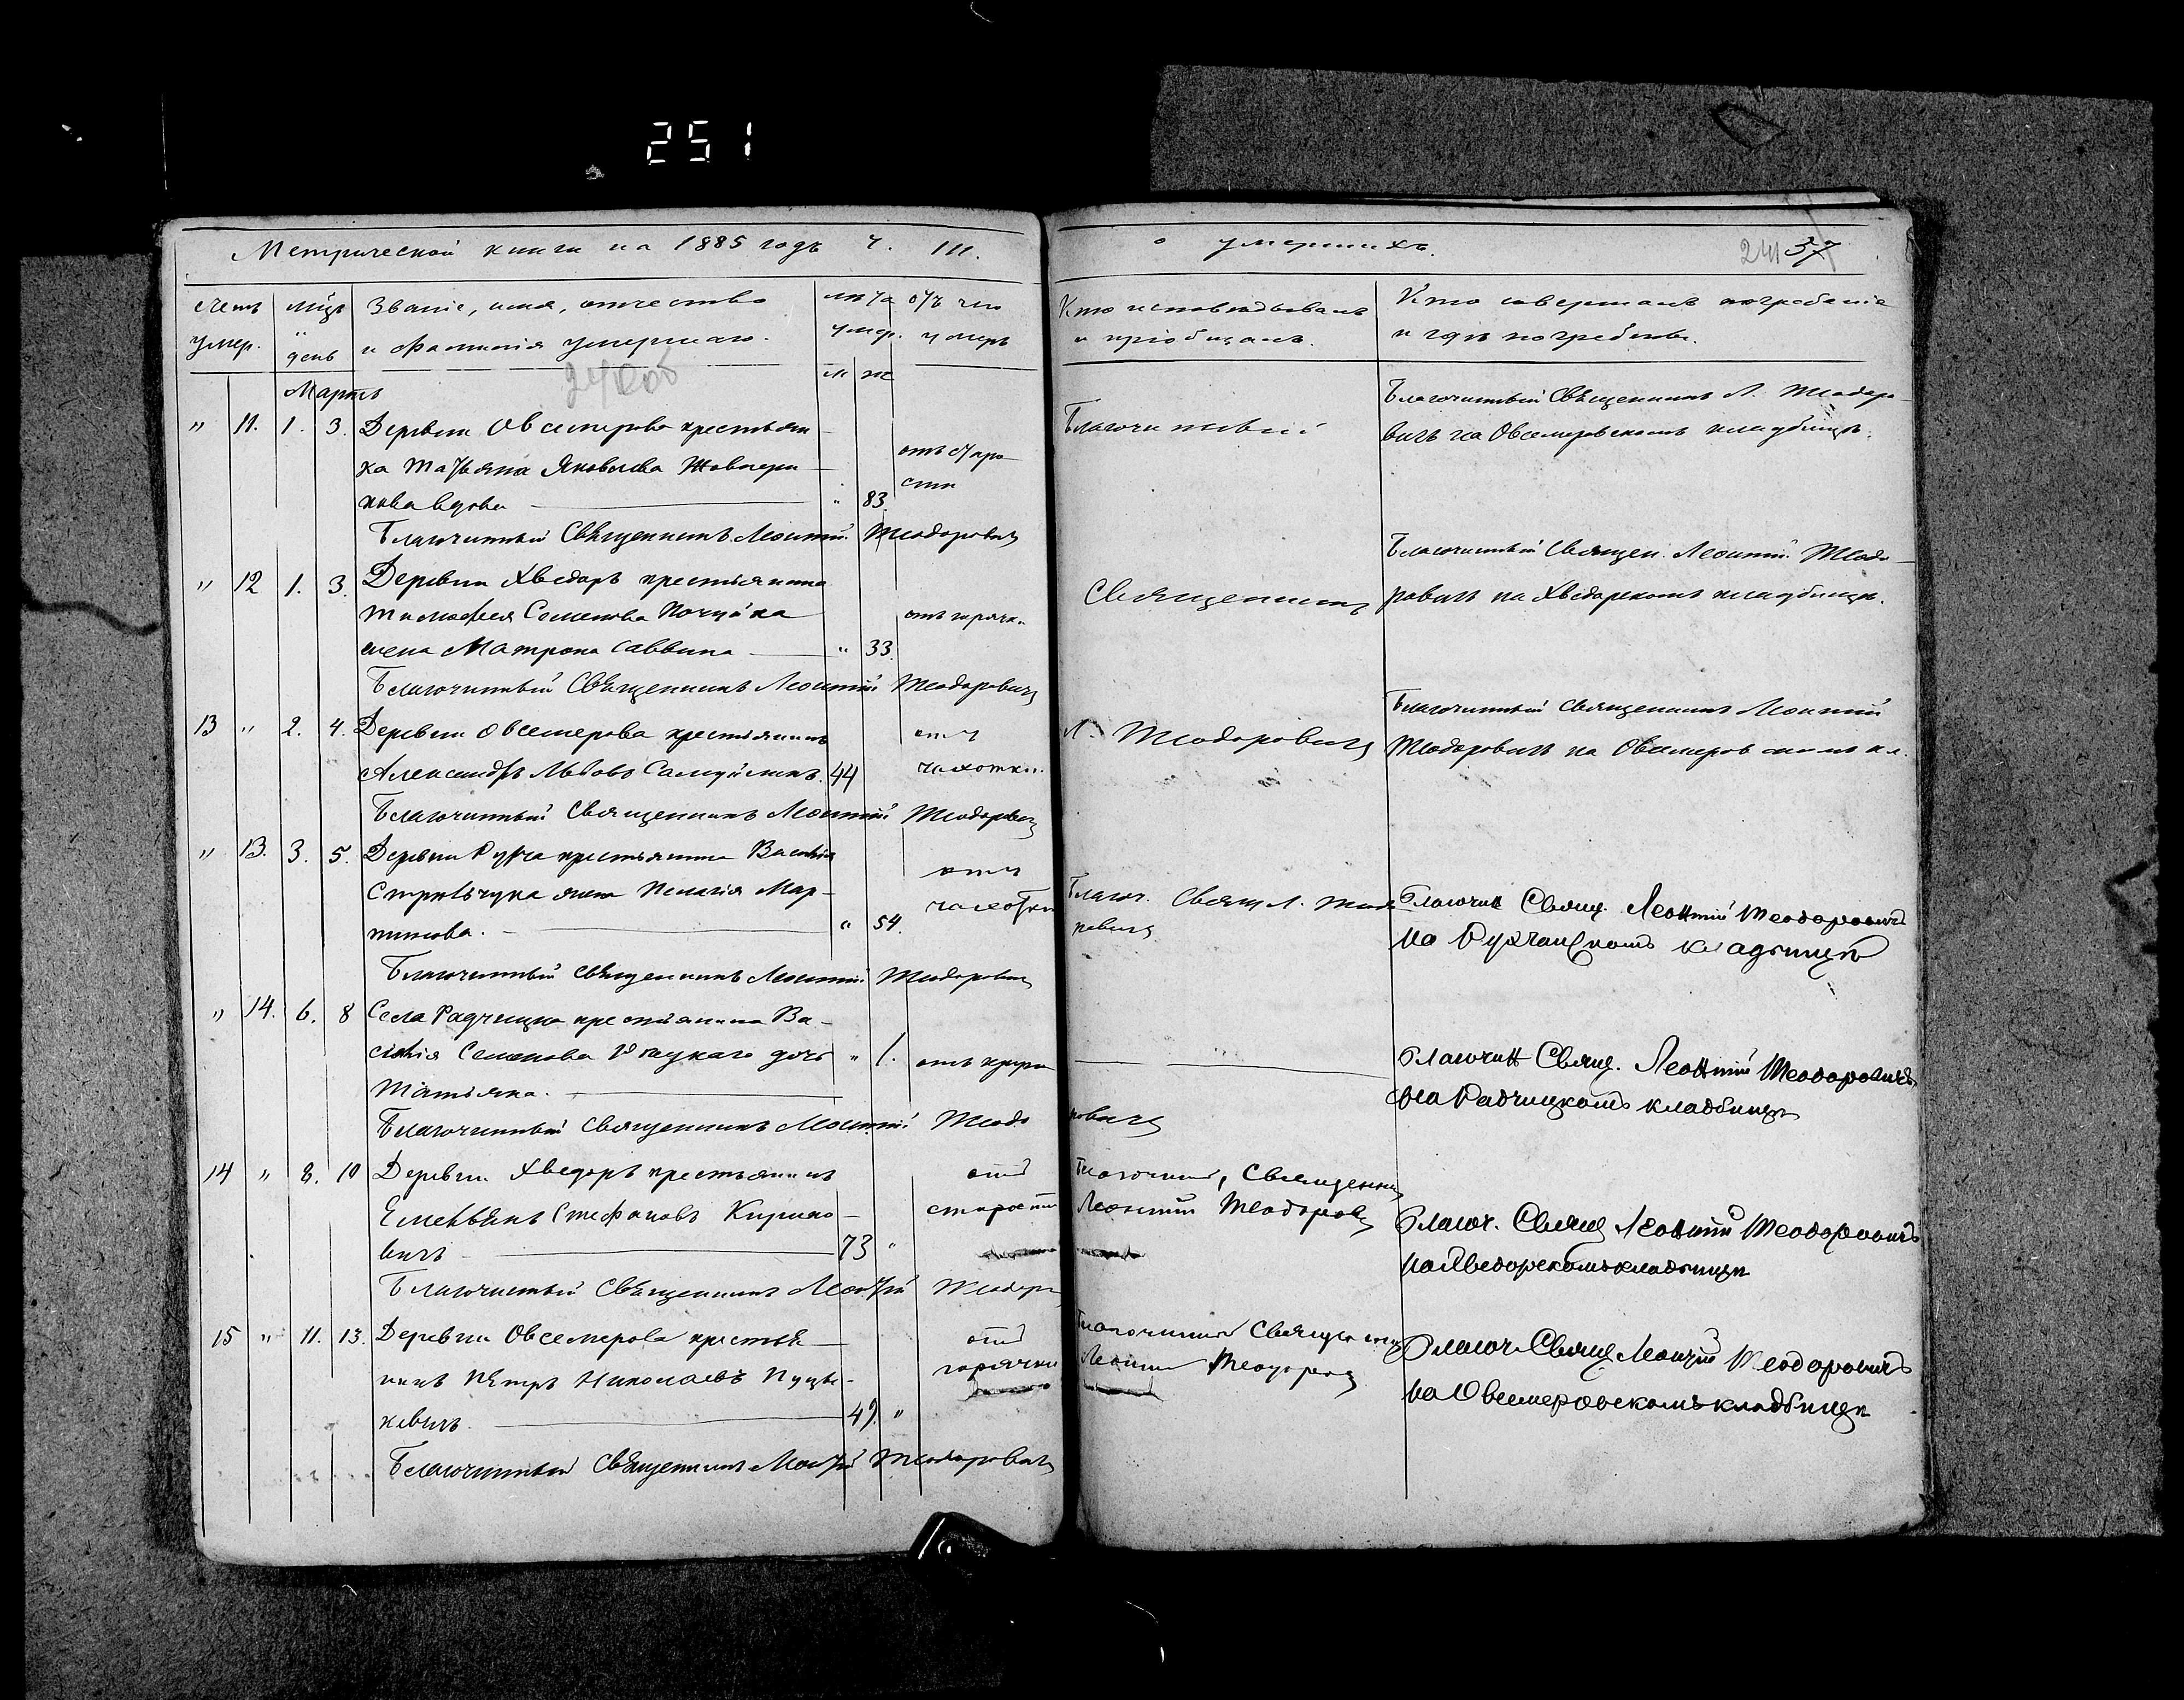 251
Метрической книги на 1885 годъ ч. III.
о умершихъ.
241 37
Счетъ умер.
мѣц. и день
Званіе, имя, отчество
и фамилія умершаго.
лѣта умер.
отъ чего умеръ
Кто исповѣдывалъ
и пріобщалъ.
Кто совершалъ погребеніе
и гдѣ погребены.
м ж
Мартъ
" 11. 1. 3. Деревни Овсемерова крестьян-
ка Татьяна Яковлева
вдова " 83
отъ старо-
сти
Благочинный
Благочинный Священникъ Л. Теодоро-
вичъ на Овсемеровскомъ кладбищѣ.
Благочинный Священникъ Леонтій Теодоровичъ
" 12 1. 3. Деревни Хведоръ крестьянина
Тимофея Семенова
жена Матрона Саввина " 33.
отъ горячк.
Священникъ
Благочинный Священ. Леонтій Теодо-
ровичъ на Хведорскомъ кладбищѣ.
Благочинный Священникъ Леонтій Теодоровичъ
13 " 2. 4. Деревни Овсемерова крестьянинъ
Александръ Львовъ 44
отъ
чахотки.
Л. Теодоровичъ
Благочинный Священникъ Леонтій
Теодоровичъ на Овсемеровскомъ кл.
Благочинный Священникъ Леонтій Теодоровичъ
" 13. 3. 5. Деревни Рухча крестьянина Василія
Стрельчука жена Пелагія Мар-
тинова. " 54.
отъ
чахотки
Благоч. Свящ Л. Теодо-
ровичъ
Благочин Свящ. Леонтій Теодоровичъ
на Рухчанскомъ кладбищѣ
Благочинный Священникъ Леонтій Теодоровичъ
" 14. 6. 8 Села Радчицка крестьянина Ва-
силія Семенова дочь " 1.
Татьяна.
отъ крупа
Благочин Свящ. Леонтій Теодоровичъ
на Радчицкомъ кладбищѣ
Благочинный Священникъ Леонтій Теодо
ровичъ
14 " 8. 10 Деревни Хведоръ крестьянинъ
Стефановъ Кирило-
вичъ 73 "
отъ
старости
Благочинный, Священникъ
Леонтій Теодоров
Благоч. Свящ Леонтій Теодоровичъ
на Хведорскомъ кладбищѣ
Благочинный Священникъ Леонтій Теодоро
15 " 11. 13. Деревни Овсемерова крестья-
нинъ Петръ Николаевъ Пуць-
кевичъ. 49 "
отъ
горячки
Благочинный Священникъ
Леонтій Теодоров
Благоч Свящ Леонтій Теодоровичъ
на Овсемеровскомъ кладбищѣ
Благочинный Священникъ Леонтій Теодоровичъ